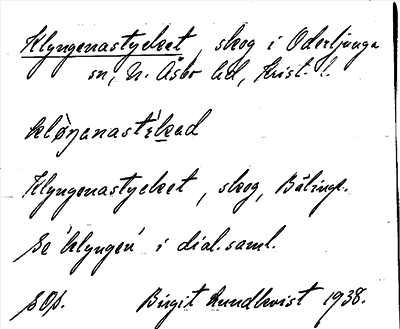 Klyngenastycket, skog i Oderljunga
sn, N. Åsbo hd, Krist. l.
Klyngenastycket, skog, Bälingk.
Se 'klyngen' i dial.saml.
Birgit Rundkvist 1938.